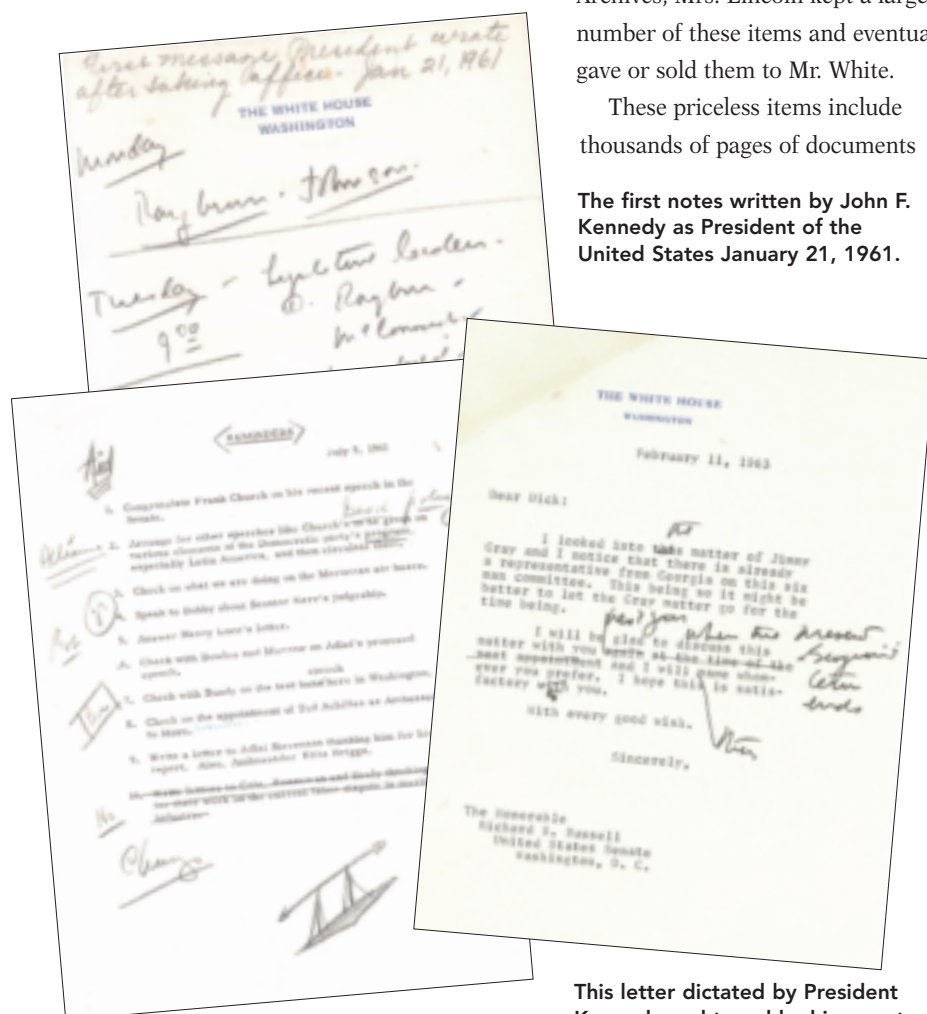 Archives, Mrs. Lincoln kept a large
number of these items and eventua
gave or sold them to Mr. White.
These priceless items include
thousands of pages of documents
The first notes written by John F.
Kennedy as President of the
United States January 21, 1961.
First message President wrote
after taking office. Jan 21, 1961
THE WHITE HOUSE
WASHINGTON
Monday
Rayburn - Johnson
Tuesday -
Rayburn -
9 00
REMINDERS
July 5,
Aid
1. Congratulate Frank Church on his recent speech in the
Senate.
2. Arrange for other speeches like Church's to be given on
various elements of the Democratic party's program,
especially Latin America, and then circulate them.
3. Check on what we are doing on the Moroccan air bases.
4. Speak to Bobby about Senator judgeship.
5. Answer Henry Luce's letter.
6. Check with Bowles and Murrow on Adlai's proposed
speech.
speech
7. Check with Bundy on the in Washington.
8. Check on the appointment of Ted Achilles as
9. Write a letter to Adlai Stevenson thanking him for his
report. Also, Ambassador Ellis Briggs.
10. Write letters to and thanking
for their work on the current labor dispute in
industry.
No
THE WHITE HOUSE
WASHINGTON
February 11, 1963
Dear Dick:
the
I looked into this matter of Jimmy
Gray and I notice that there is already
a representative from Georgia on this six
man committee. This being so it might be
better to let the Gray matter go for the
time being.
next year when the present
I will be glad to discuss this
matter with you again at the time of the
next appointment and I will name whom-
ever you prefer. I hope this is satis-
factory with you.
ends
With every good wish.
Sincerely,
The Honorable
Richard B. Russell
United States Senate
Washington, D. C.
This letter dictated by President